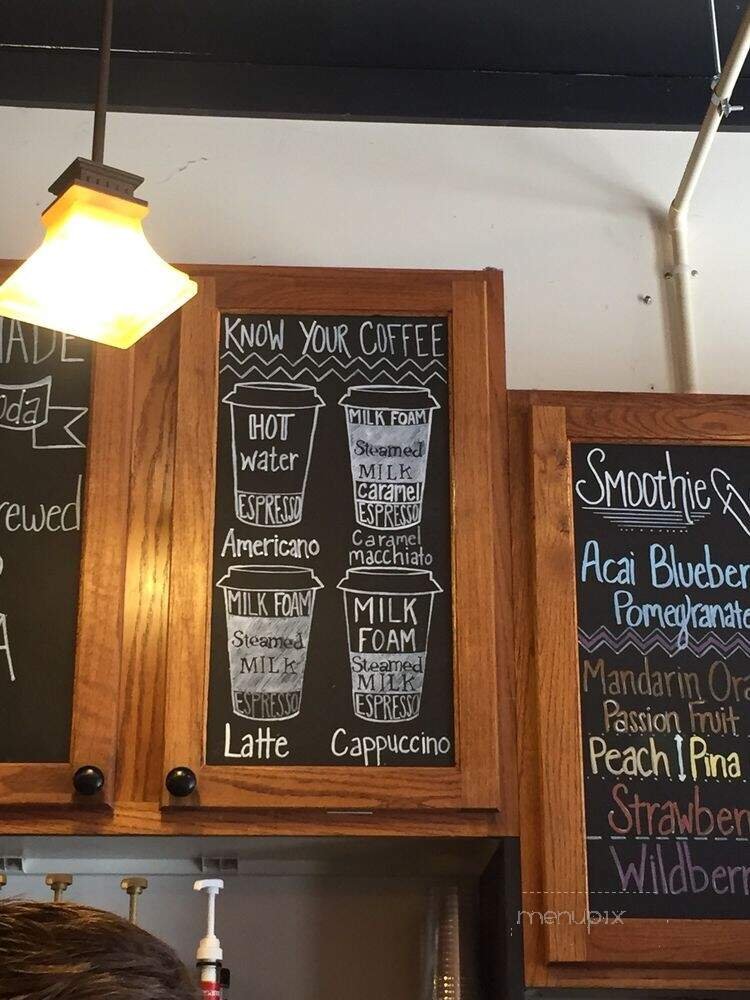 KNOW YOUR COFFEE
HOT
water
ESPRESSO
Americano
MILK FOAM
Steamed
MILK
caramel
ESPRESSO
Caramel
macchiato
MILK FOAM
Steamed
MILK
ESPRESSO
Latte
MILK
FOAM
Steamed
MILK
ESPRESSO
Cappuccino
Smoothie
Acai
Pomegranate
Mandarin
Passion Fruit
Peach Pina
menupix